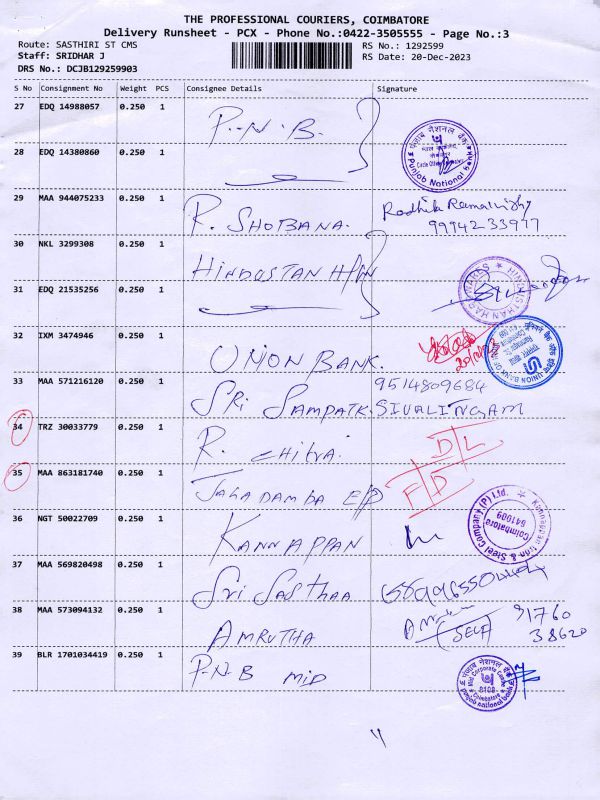 THE PROFESSIONAL COURIERS, COIMBATORE
Delivery Runsheet - PCX - Phone No.:0422-3505555 - Page No.:3
Route: SASTHIRI ST CMS
RS No.: 1292599
Staff: SRIDHAR J
RS Date: 20-Dec-2023
DRS No.: DCJB129259903
S No Consignment No Weight PCS Consignee Details Signature
27 EDQ 14988057 0.250 1 P.N.B.
28 EDQ 14380860 0.250 1
पंजाब नैशनल बैंक
Punjab National Bank
29 MAA 944075233 0.250 1 R. SHOBANA. Radhik
9994233977
30 NKL 3299308 0.250 1 HINDUSTAN
31 EDQ 21535256 0.250 1
32 IXM 3474946 0.250 1 UNION BANK.
UNION BANK OF
33 MAA 571216120 0.250 1 SRI SAMPATK. SIVALINGAM
9514809684
34 TRZ 30033779 0.250 1 R. CHITRA. D/L
35 MAA 863181740 0.250 1 JAGADAMBA E/P F/D
36 NGT 50022709 0.250 1 KANNAPPAN
Kannappan Iron & Steel Company (P) Ltd.
Coimbatore
641009
37 MAA 569820498 0.250 1 SRI SASTHAA
38 MAA 573094132 0.250 1 AMRUTHA (SELF) 91760
38620
39 BLR 1701034419 0.250 1 P-N-B MID
पंजाब नैशनल बैंक
Mid Corporate Centre
8108
Coimbatore
punjab national bank